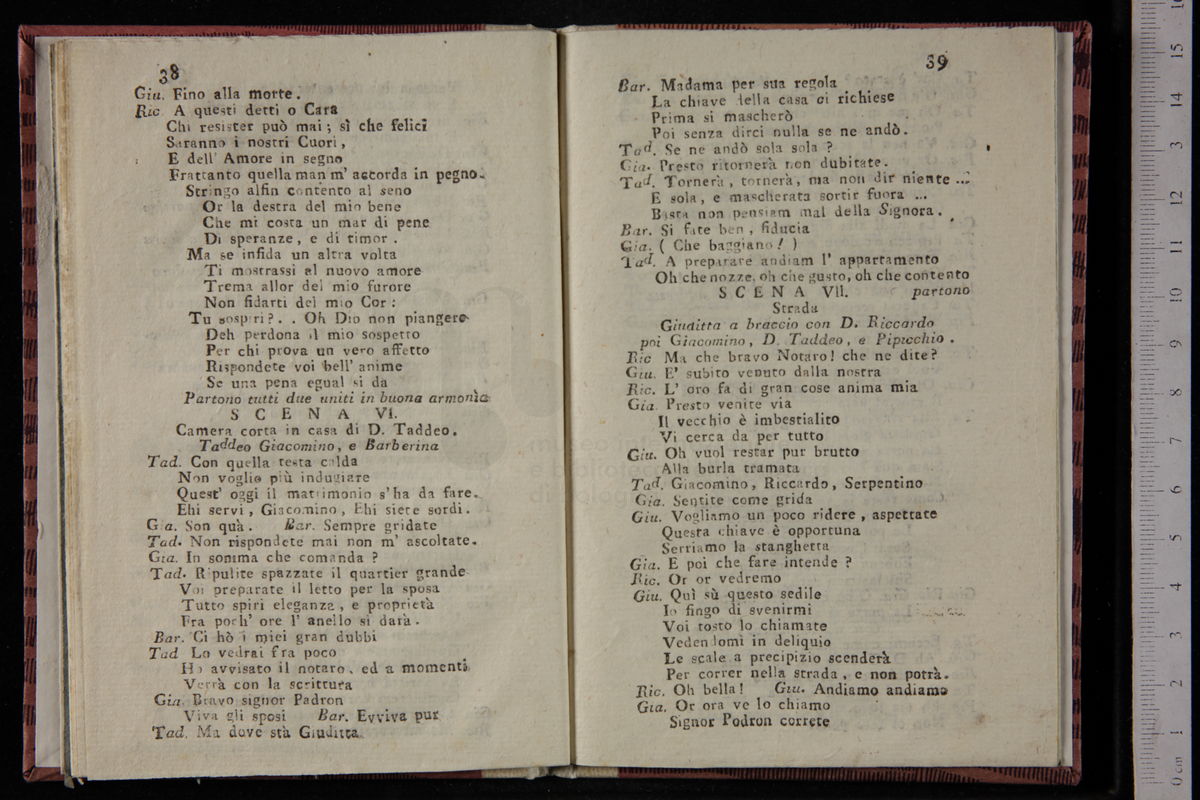 38
Giu. Fino alla morte.
Ric. A questi detti o Cara
Chi resister può mai; sì che felici
Saranno i nostri Cuori,
E dell' Amore in segno
Frattanto quella man m' accorda in pegno.
Stringo alfin contento al seno
Or la destra del mio bene
Che mi costa un mar di pene
Di speranze, e di timor.
Ma se infida un altra volta
Ti mostrassi al nuovo amore
Trema allor del mio furore
Non fidarti del mio Cor:
Tu sospiri?.. Oh Dio non piangere
Deh perdona il mio sospetto
Per chi prova un vero affetto
Rispondete voi bell' anime
Se una pena egual si da
Partono tutti due uniti in buona armonìa
SCENA VI.
Camera corta in casa di D. Taddeo.
Taddeo Giacomino, e Barberina
Tad. Con quella testa calda
Non voglio più indugiare
Quest' oggi il matrimonio s'ha da fare.
Ehi servi, Giacomino, Ehi siete sordi.
Gia. Son quà. Bar. Sempre gridate
Tad. Non rispondete mai non m' ascoltate.
Gia. In somma che comanda?
Tad. Ripulite spazzate il quartier grande
Voi preparate il letto per la sposa
Tutto spiri eleganza, e proprietà
Fra poch' ore l' anello si darà.
Bar. Ci hò i miei gran dubbi
Tad Lo vedrai fra poco
Ho avvisato il notaro, ed a momenti
Verrà con la scrittura
Gia. Bravo signor Padron
Viva gli sposi Bar. Evviva pur
Tad. Ma dove stà Giuditta
39
Bar. Madama per sua regola
La chiave della casa ci richiese
Prima si mascherò
Poi senza dirci nulla se ne andò.
Tad. Se ne andò sola sola?
Gia. Presto ritornerà non dubitate.
Tad. Tornerà, tornerà, ma non dir niente ...
E sola, e mascherata sortir fuora ...
Basta non pensiam mal della Signora.
Bar. Si fate ben, fiducia
Gia. ( Che baggiano! )
Tad. A preparare andiam l' appartamento
Oh che nozze, oh che gusto, oh che contento
SCENA VII. partono
Strada
Giuditta a braccio con D. Riccardo
poi Giacomino, D. Taddeo, e Pipicchio.
Ric Ma che bravo Notaro! che ne dite?
Giu. E' subito venuto dalla nostra
Ric. L' oro fa di gran cose anima mia
Gia. Presto venite via
Il vecchio è imbestialito
Vi cerca da per tutto
Giu. Oh vuol restar pur brutto
Alla burla tramata
Tad. Giacomino, Riccardo, Serpentino
Gia. Sentite come grida
Giu. Vogliamo un poco ridere, aspettate
Questa chiave è opportuna
Serriamo la stanghetta
Gia. E poi che fare intende?
Ric. Or or vedremo
Giu. Quì sù questo sedile
Io fingo di svenirmi
Voi tosto lo chiamate
Vedendomi in deliquio
Le scale a precipizio scenderà
Per correr nella strada, e non potrà.
Ric. Oh bella! Giu. Andiamo andiamo
Gia. Or ora ve lo chiamo
Signor Podron correte